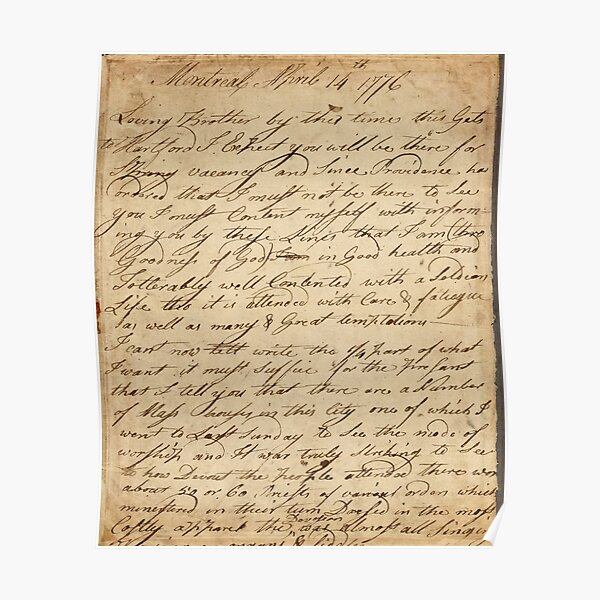 Montreal April 14th 1776
Loving Brother by this time this Gets
to Hartford I Expect you will be there for
Spring vacancy and Since Providence has
ordered that I must not be there to See
you I must Content myself with inform-
ing you by these Lines that I am (thro
Goodness of God) I am in Good health and
Tollerably well Contented with a Soldier
Life tho it is attended with Care & fatigue
as well as many & Great temptations—
I cant now tell write the 1/4 part of what
I want it must Suffice for the
that I tell you that there are a Number
of Mass houses in this City one of which I
went to Last Sunday to See the mode of
worship and it was truly Striking to See
to how Devout the people attend there were
about 50 or 60 Priests of various orders which
ministerd in their turn Dresed in the most
Costly apparel the Devotion was almost all Singing
organs &